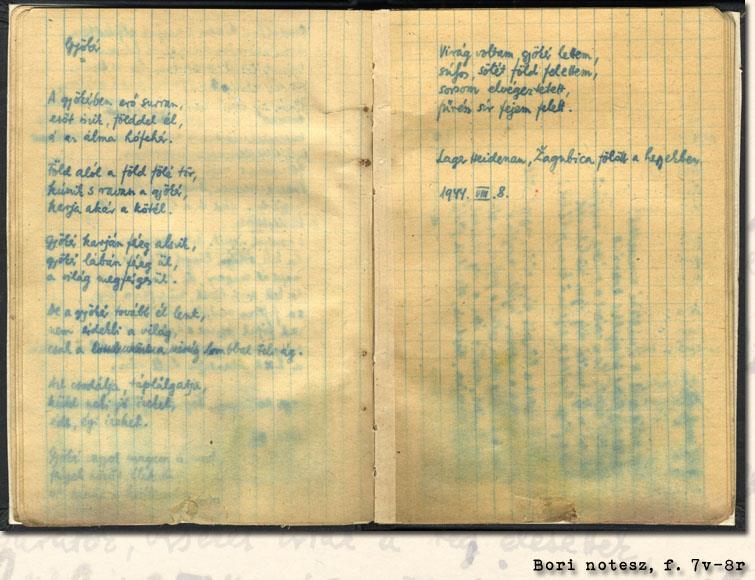 Gyökér
A gyökérben erő surran,
esőt iszik, földdel él,
s az álma hófehér.
Föld alól a föld fölé tör,
kúszik s ravasz a gyökér,
karja akár a kötél.
Gyökér karján féreg alszik,
gyökér lábán féreg ül,
a világ megférgesül.
De a gyökér tovább él lent,
nem érdekli a világ,
csak a lombbal teli ág.
Azt csodálja, táplálgatja,
küld neki jó ízeket,
édes, égi ízeket.
Gyökér vagyok magam is most
férgek között élek én
Virág voltam, gyökér lettem,
súlyos, sötét föld felettem,
sorsom elvégeztetett,
fűrész sír fejem felett.
Lager Heidenau, Žagubica fölött a hegyekben
1944. VIII. 8.
Bori notesz, f. 7v-8r